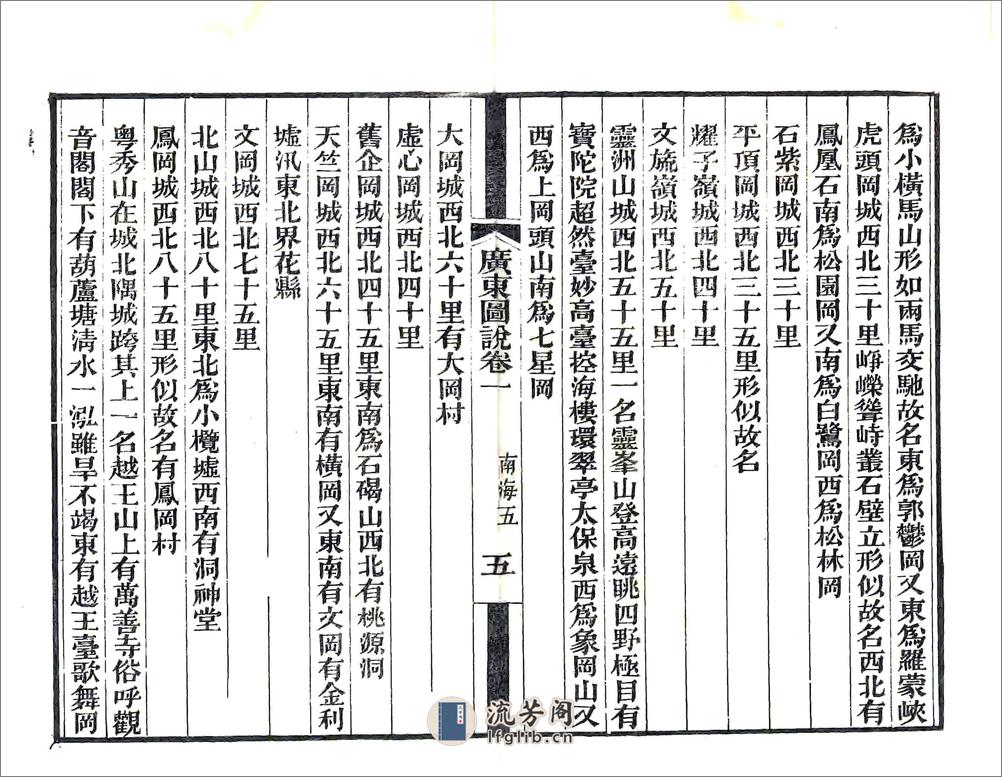 爲小橫馬山形如兩馬交馳故名東爲郭鬱岡又東爲羅蒙峽
虎頭岡城西北三十里崢嶸聳峙叢石壁立形似故名西北有
鳳凰石南爲松園岡又南爲白鷺岡西爲松林岡
石紫岡城西北三十里
平頂岡城西北三十五里形似故名
耀子嶺城西北四十里
文旒嶺城西北五十里
靈洲山城西北五十五里一名靈峯山登高遠眺四野極目有
寶陀院超然臺妙高臺控海樓環翠亭太保泉西爲象岡山又
西爲上岡頭山南爲七星岡
廣東圖說卷一
南海五
五
大岡城西北六十里有大岡村
虛心岡城西北四十里
舊企岡城西北四十五里東南爲石碣山西北有桃源洞
天竺岡城西北六十五里東南有橫岡又東南有文岡有金利
墟汛東北界花縣
文岡城西北七十五里
北山城西北八十里東北爲小欖墟西南有洞神堂
鳳岡城西北八十五里形似故名有鳳岡村
粤秀山在城北隅城跨其上一名越王山上有萬善寺俗呼觀
音閣閣下有葫蘆塘清水一泓雖旱不竭東有越王臺歌舞岡
流芳阁
lfglib.cn